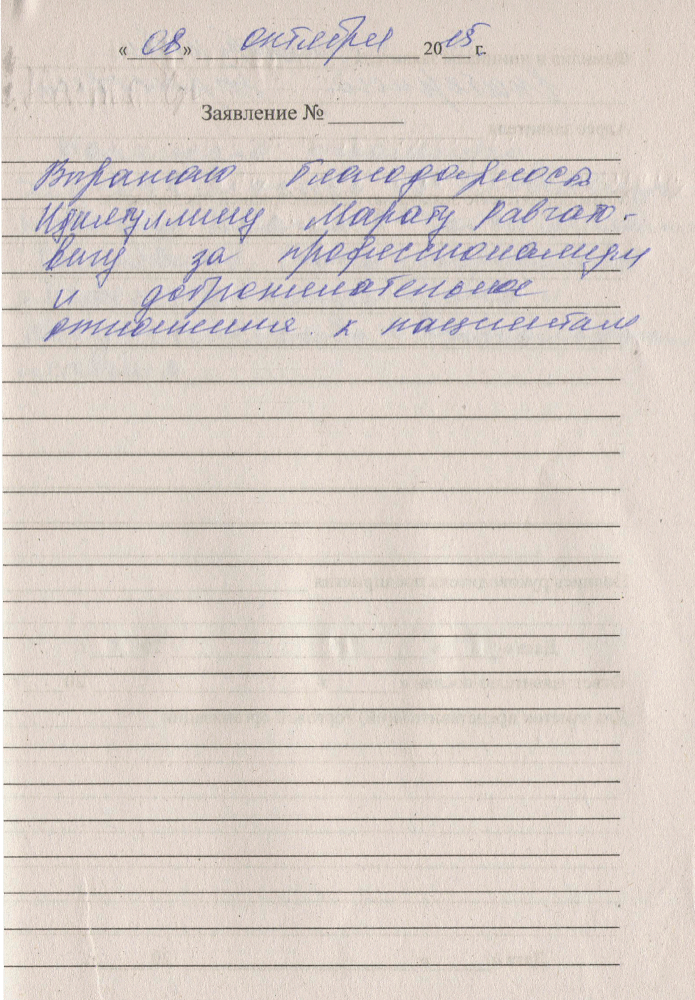 « 08 » октября 2015 г.
Заявление №
Выражаю благодарность
Марату Равгато-
вичу за профессионализм
и доброжелательное
отношение к пациентам